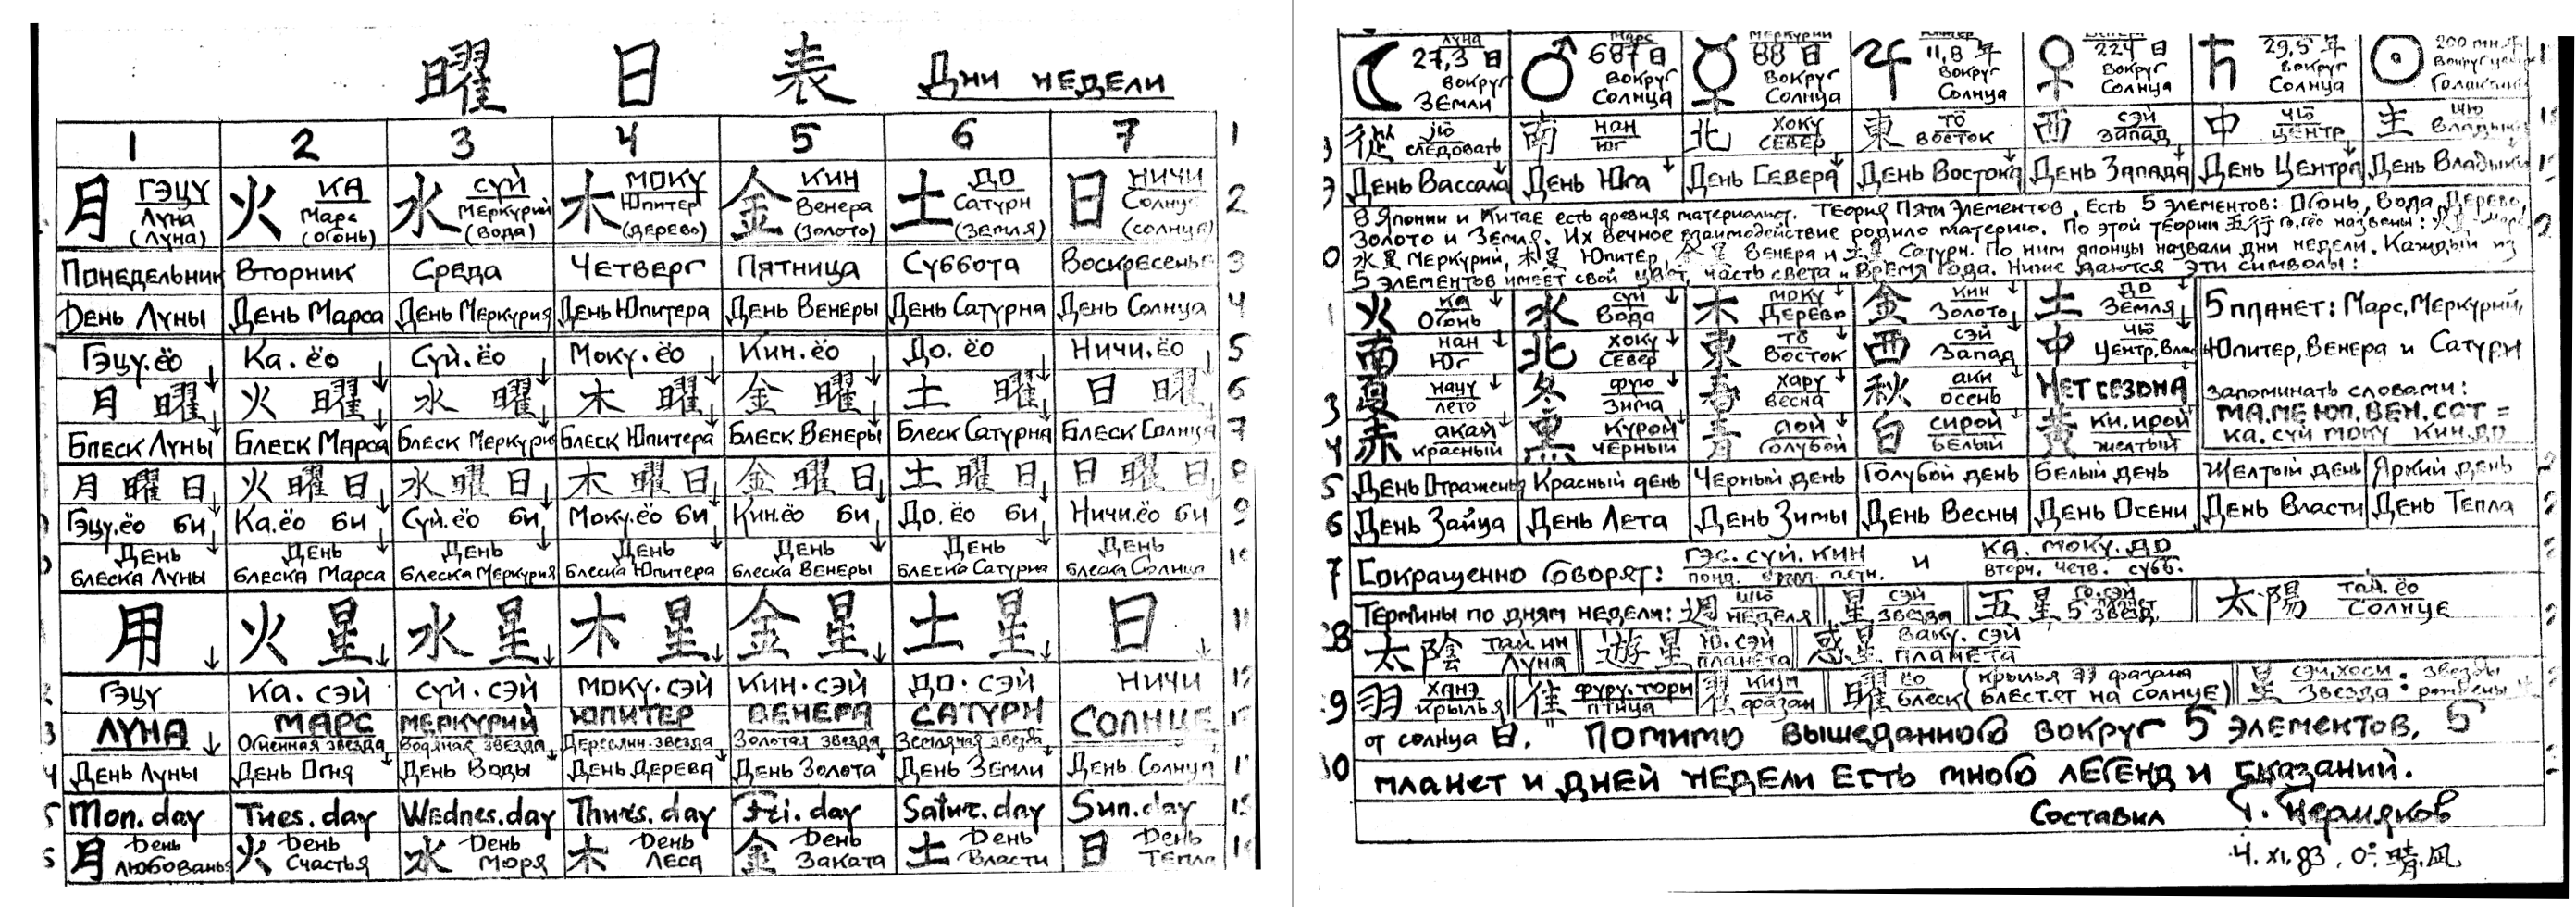 曜 日 表 Дни недели
1 2 3 4 5 6 7 1
月 гэцу Луна (Луна) 火 ка Марс (огонь) 水 суй Меркурий (вода) 木 моку Юпитер (дерево) 金 кин Венера (золото) 土 до Сатурн (земля) 日 ничи Солнце (солнце) 2
Понедельник Вторник Среда Четверг Пятница Суббота Воскресенье 3
День Луны День Марса День Меркурия День Юпитера День Венеры День Сатурна День Солнца 4
Гэцу.ёо Ка.ёо Суй.ёо Моку.ёо Кин.ёо До.ёо Ничи.ёо 5
月 曜 火 曜 水 曜 木 曜 金 曜 土 曜 日 曜 6
Блеск Луны Блеск Марса Блеск Меркурия Блеск Юпитера Блеск Венеры Блеск Сатурна Блеск Солнца 7
月 曜 日 火 曜 日 水 曜 日 木 曜 日 金 曜 日 土 曜 日 日 曜 日 8
Гэцу.ёо би Ка.ёо би Суй.ёо би Моку.ёо би Кин.ёо би До.ёо би Ничи.ёо би 9
День блеска Луны День блеска Марса День блеска Меркурия День блеска Юпитера День блеска Венеры День блеска Сатурна День блеска Солнца
用 火 星 水 星 木 星 金 星 土 星 日 11
гэцу ка.сэй суй.сэй моку.сэй кин.сэй до.сэй ничи
Луна Марс Огненная звезда Меркурий Водяная звезда Юпитер Деревянн.звезда Венера Золотая звезда Сатурн Земляная звезда Солнце
День Луны День Огня День Воды День Дерева День Золота День Земли День Солнца
Mon.day Tues.day Wednes.day Thurs.day Fri.day Satur.day Sun.day
月 День любованья 火 День Счастья 水 День Моря 木 День Леса 金 День Заката 土 День Власти 日 День Тепла
☾ Луна 27,3 日 вокруг Земли ♂ Марс 687 日 вокруг Солнца ☿ Меркурий 88 日 вокруг Солнца ♃ 11,8 年 вокруг Солнца ♀ 224 日 вокруг Солнца ♄ 29,5 年 вокруг Солнца ☉ 200 мн.
從 дзю следовать 南 нан юг 北 хоку север 東 то восток 西 сэй запад 中 чю центр 主 шю Владыка
День Вассала День Юга День Севера День Востока День Запада День Центра День Владыки
В Японии и Китае есть древняя материалист. Теория Пяти элементов. Есть 5 элементов: Огонь, Вода, Дерево,
Золото и Земля. Их вечное взаимодействие родило материю. По этой теории 五行 го.гёо названы: 火星 Марс
水星 Меркурий, 木星 Юпитер, 金星 Венера и 土星 Сатурн. По ним японцы назвали дни недели. Каждый из
5 элементов имеет свой цвет, часть света и время года. Ниже даются эти символы:
火 ка Огонь 水 суй Вода 木 моку Дерево 金 кин Золото 土 до Земля 5 планет: Марс, Меркурий,
南 нан Юг 北 хоку Север 東 то Восток 西 сэй Запад 中 чю Центр, Юпитер, Венера и Сатурн
夏 нацу лето 冬 фую зима 春 хару весна 秋 аки осень нет сезона Запоминать словами:
赤 акай красный 黒 курой чёрный 青 аой голубой 白 сирой белый 黄 ки.ирой желтый МА.МЕ.ЮП.ВЕН.САТ =
ка.суй моку кин.до
День Отраженья Красный день Черный день Голубой день Белый день Желтый день Яркий день
День Зайца День Лета День Зимы День Весны День Осени День Власти День Тепла
Сокращенно говорят: гэс.суй.кин и ка.моку.до
понд. пятн. вторн. четв. субб.
Термины по дням недели: 週 шю неделя 星 сэй звезда 五星 го.сэй 5 звезд 太陽 тай.ёо Солнце
太陰 тай.ин Луна 遊星 ю.сэй планета 惑星 ваку.сэй планета
羽 ханэ крылья 隹 фуру.тори птица 翟 фазан 曜 ёо блеск (крылья 羽 фазана блестят на солнце) 星 сэй, хоси звезда: звезды рождены
от солнца 日." Помимо вышеданного вокруг 5 элементов, 5
планет и дней недели есть много легенд и сказаний.
Составил Г. Пермяков
4.XI.83, 0° 晴.凪